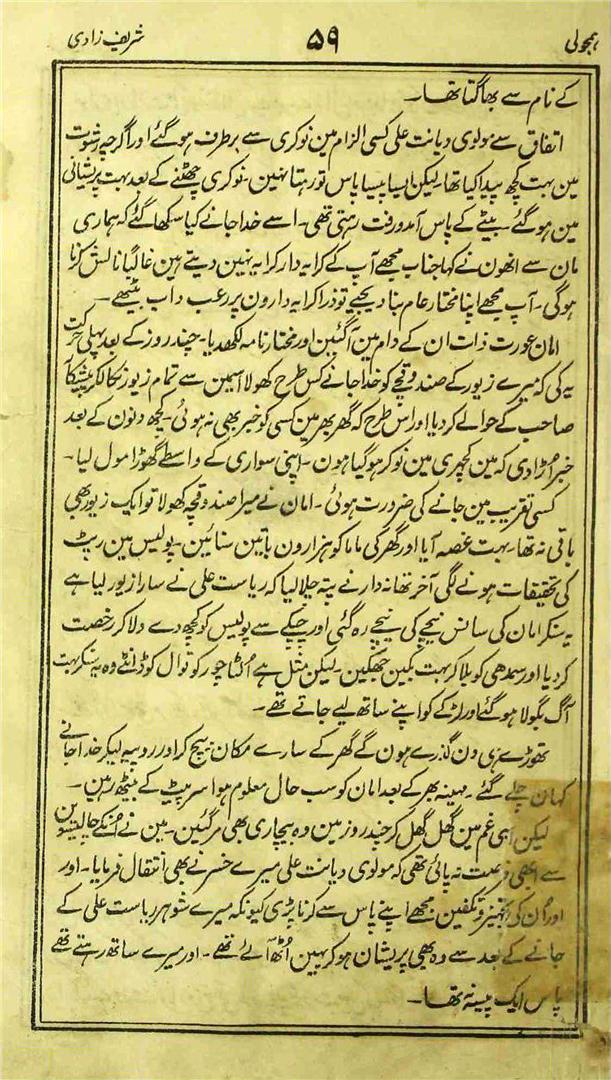 ہمجولی ۵۹ شریف زادی
کے نام سے بھاگتا تھا۔
اتفاق سے مولوی دیانت علی کسی الزام مین نوکری سے برطرف ہو گئے اور اگرچہ رشوت
مین بہت کچھ پیدا کیا تھا۔ لیکن ایسا پیسا پاس تو رہتا نہین۔ نوکری چھٹنے کے بعد بہت پریشانی
مین ہو گئے۔ بیٹے کے پاس آمدورفت رہتی تھی۔ اسے خدا جانے کیا سکھا گئے کہ ہماری
مان سے انھون نے کہا جناب مجھے آپ کے کرایہ دار کرایہ نہین دیتے ہین غالباً نالش کرنا
ہوگی۔ آپ مجھے اپنا مختار عام بنا دیجیے تو ذرا کرایہ دارون پر رعب داب بیٹھے۔
امان عورت ذات ان کے دام مین آ گئین اور مختار نامہ لکھدیا۔ چند روز کے بعد پہلی حرکت
یہ کی کہ میرے زیور کے صندوقچے کو خدا جانے کس طرح کھولا اسمین سے تمام زیور نکالکر
صاحب کے حوالے کر دیا اور اس طرح کہ گھر بھر مین کسی کو خبر بھی نہ ہوئی۔ کچھ دنون کے بعد
خبر اُڑا دی کہ مین کچہری مین نوکر ہو گیا ہون۔ اپنی سواری کے واسطے گھوڑا مول لیا۔
کسی تقریب مین جانے کی ضرورت ہوئی۔ امان نے میرا صندوقچہ کھولا تو ایک زیور بھی
باقی نہ تھا۔ بہت غصہ آیا اور گھر کی ماما کو ہزارون باتین سنائین۔ پولیس مین رپٹ
کی تحقیقات ہونے لگی آخر تھانہ دار نے پتہ چلا لیا کہ ریاست علی نے سارا زیور لیا ہے
یہ سنکر امان کی سانس نیچے کی نیچے رہ گئی اور چپکے سے پولیس کو کچھ دے دلا کر رخصت
کر دیا اور سمدھی کو بلا کر بہت بکین جھکین۔ لیکن مثل ہے اُلٹا چور کوتوال کو ڈانٹے وہ یہ سنکر بہت
آگ بگولا ہو گئے اور لڑکے کو اپنے ساتھ لیے جاتے تھے۔
تھوڑے ہی دن گذرے ہون گے گھر کے سارے مکان بیچ کر اور روپیہ لیکر خدا جانے
کہان چلے گئے۔ مہینہ بھر کے بعد امان کو سب حال معلوم ہوا سر پیٹ کے بیٹھ رہین۔
لیکن اسی غم مین گھل گھل کر چند روز مین وہ بیچاری بھی مر گئین۔ مین نے اُنکے چالیسوین
سے ابھی فرصت نہ پائی تھی کہ مولوی دیانت علی میرے خسر نے بھی انتقال فرمایا۔ اور
اور اُن کی تجہیز و تکفین مجھے اپنے پاس سے کرنا پڑی کیونکہ میرے شوہر ریاست علی کے
جانے کے بعد سے وہ بھی پریشان ہو کر یہین اُٹھ آئے تھے۔ اور میرے ساتھ رہتے تھے
پاس ایک پیسہ نہ تھا۔